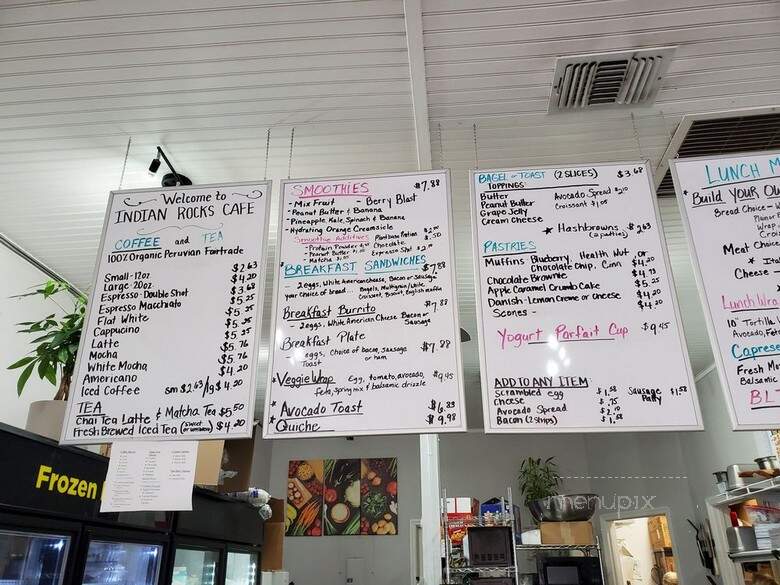 Welcome to
INDIAN ROCKS CAFE
COFFEE and TEA
100% Organic Peruvian Fairtrade
Small-12oz $2.63
Large-20oz $4.20
Espresso-Double Shot $3.68
Espresso Macchiato $5.25
Flat White $5.25
Cappucino $5.25
Latte $5.25
Mocha $5.76
White Mocha $5.76
Americano $4.20
Iced Coffee sm $2.63/lg $4.20
TEA
Chai Tea Latte & Matcha Tea $5.50
Fresh Brewed Iced Tea (sweet or unsweet) $4.20
SMOOTHIES $7.88
- Mix Fruit - Berry Blast
- Peanut Butter & Banana
- Pineapple, Kale, Spinach & Banana
- Hydrating Orange Creamsicle
Smoothie Additives
Plantbase Potion $2.00
- Protein Powder Chocolate $.50
- Peanut Butter Espresso Shot
- Matcha
BREAKFAST SANDWICHES $7.88
- 2 eggs, White American cheese, Bacon or Sausage
your choice of bread... Bagels, Multigrain/White,
Croissant, Biscuit, English muffin
Breakfast Burrito $7.88
- 2 eggs, White American Cheese Bacon or
Sausage
Breakfast Plate $7.88
- 2 eggs, Choice of bacon, sausage
Toast or ham
* Veggie Wrap Egg, tomato, avocado, $9.45
Feta, spring mix & balsamic drizzle
* Avocado Toast $6.83
* Quiche $9.98
BAGEL or TOAST (2 SLICES) $3.68
TOPPINGS:
Butter Avocado Spread $2.10
Peanut Butter Croissant $1.05
Grape Jelly
Cream Cheese
* Hashbrowns $2.63
(2 patties)
PASTRIES
Muffins Blueberry, Health Nut, or
Chocolate Chip, Cinn $4.20
Chocolate Brownie $4.20
Apple Caramel Crumb Cake $4.73
Danish-Lemon Creme or Cheese $5.25
Scones - $4.20
Yogurt Parfait Cup $9.45
ADD TO ANY ITEM:
Scrambled egg $1.58 Sausage $1.58
Cheese $.75 Patty
Avocado Spread $2.10
Bacon (2 strips) $1.58
LUNCH M
* Build YOUR OW
Bread Choice - W
Wrap
Cro
Meat Choic
* Ita
Cheese
Lunch Wra
10" Tortilla W
Avocado, Fet
Caprese
Fresh Mo
Balsamic
BLT
Frozen
menupix